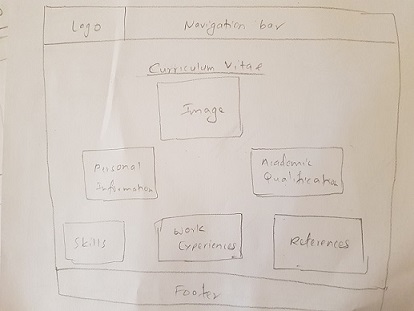 Logo
Navigation bar
Curriculum Vitae
Image
Personal
Information
Academic
Qualification
Skills
Work
Experiences
References
Footer